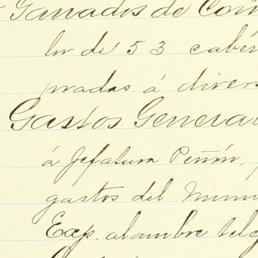 Ganados de Com
lor de 53 cabé
pradas á divers
Gastos General
á Jefatura Peñón,
gastos del Muni
Exp. alambre tele